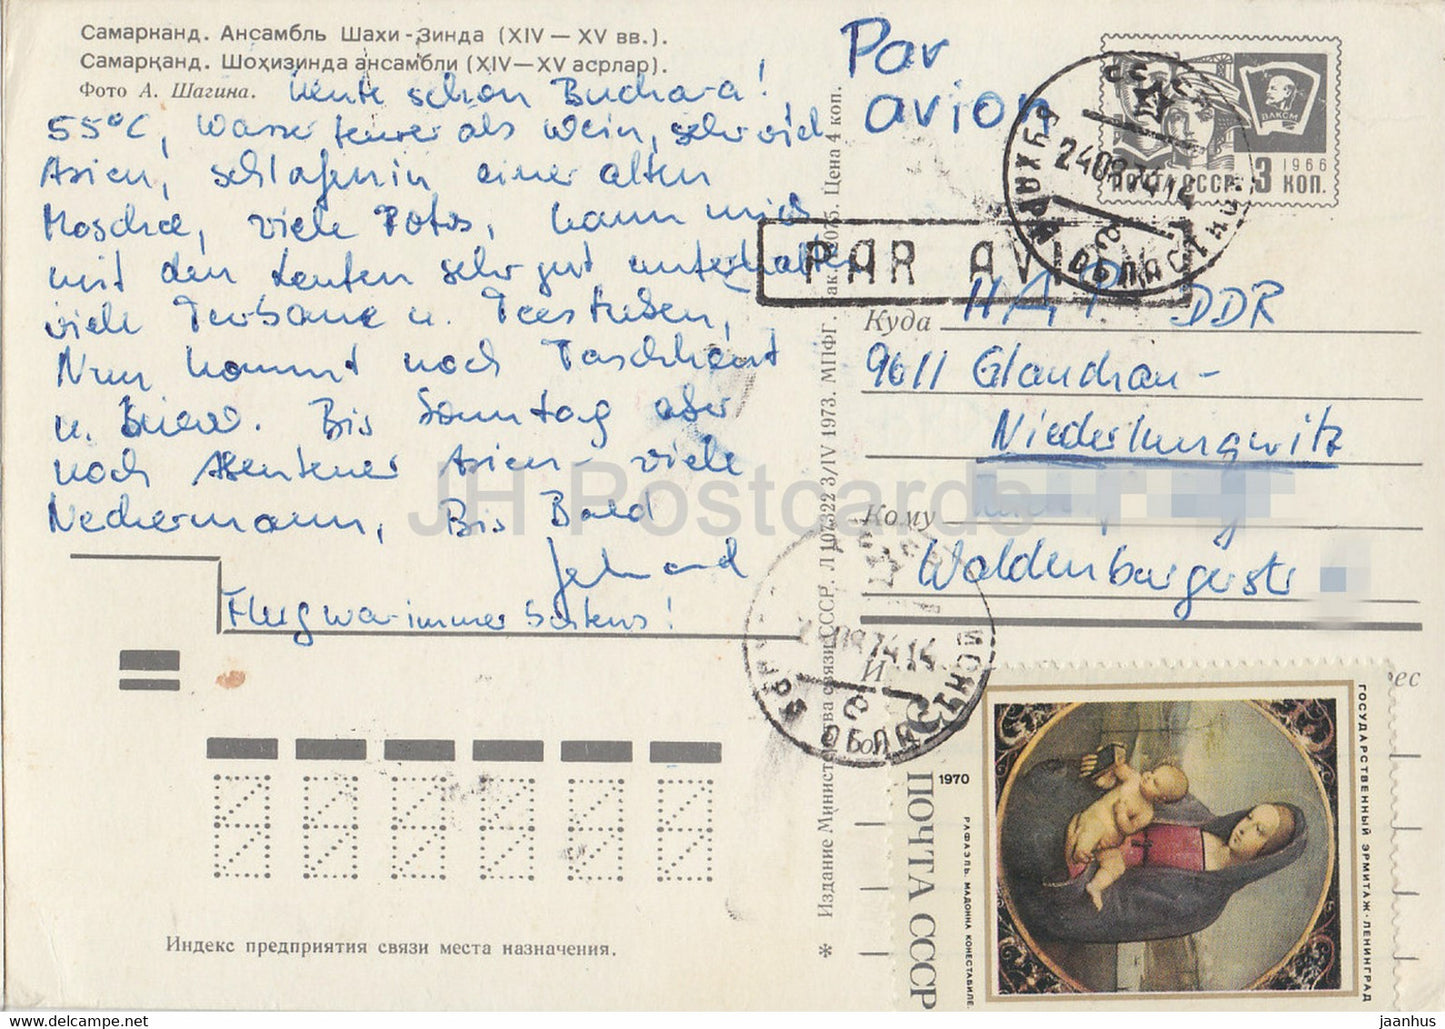 Самарканд. Ансамбль Шахи-Зинда (XIV — XV вв.).
Самарқанд. Шоҳизинда ансамбли (XIV—XV асрлар).
Фото А. Шагина.
Heute schon Buchara!
55°C, Wasser teurer als Wein, sehr viel
Asien, schlafen in einer alten
Moschee, viele Fotos, kann mich
mit den Leuten sehr gut unterhalten
viele Turbane u. Teestuben,
Nun kommt noch Taschkent
u. Kiew. Bis Sonntag aber
noch Abenteuer Asien - viele
Neckermann, Bis Bald
Flug war immer bestens!
Par
avion
PAR AVI
ПОЧТА СССР 3 КОП.
1966
ВЛКСМ
24 08 74 12
БУХАРА
ОБЛАСТНОЙ
Куда НДР DDR
9611 Glauchau -
Niederlungwitz
Кому
Waldenburgerstr
74 14
И
ес
Издание Министерства связи СССР. Л 107322 3/IV 1973. МПФГ. Цена 4 коп.
Индекс предприятия связи места назначения.
1970
ПОЧТА СССР
РАФАЭЛЬ. МАДОННА КОНЕСТАБИЛЕ.
ГОСУДАРСТВЕННЫЙ ЭРМИТАЖ · ЛЕНИНГРАД
JH Postcards
http://jhpostcards.com
jaanhus